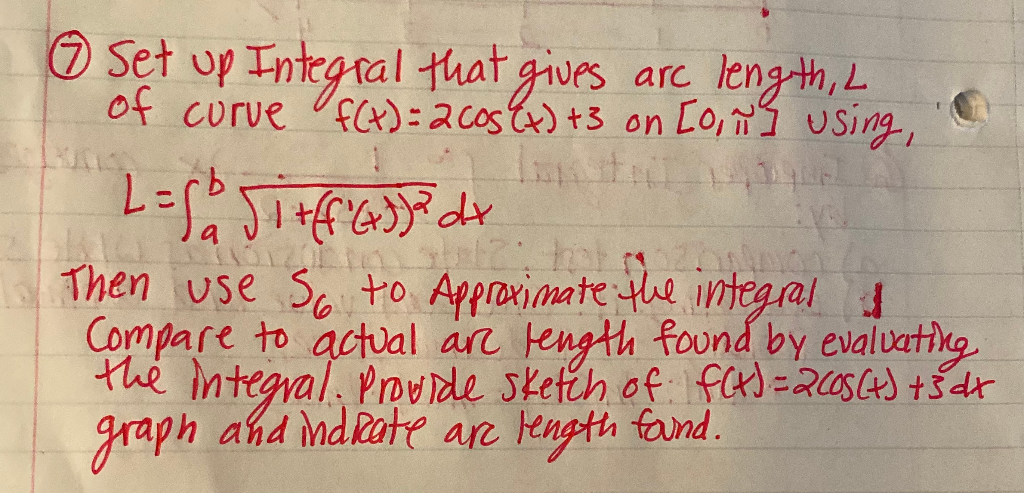 ⑦ Set up Integral that gives arc length, L
of curve f(x)=2cos(x)+3 on [0,π] using,
L=∫ₐᵇ √1+(f'(x))² dx
Then use S₆ to Approximate the integral
Compare to actual arc length found by evaluating
the integral. Provide sketch of f(x)=2cos(x)+3dx
graph and indicate arc length found.